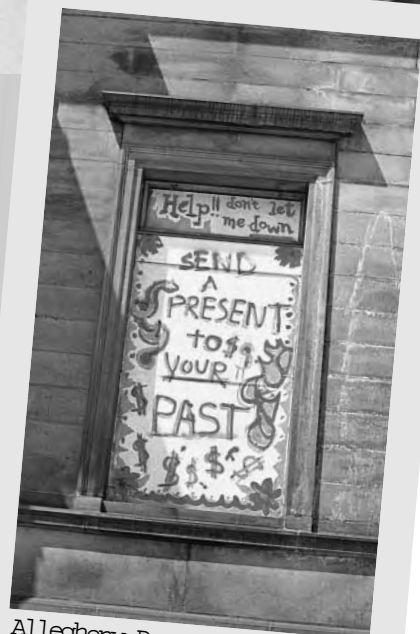 Help!! don't let
me down
SEND
A
PRESENT
TO
YOUR
PAST
Allegheny